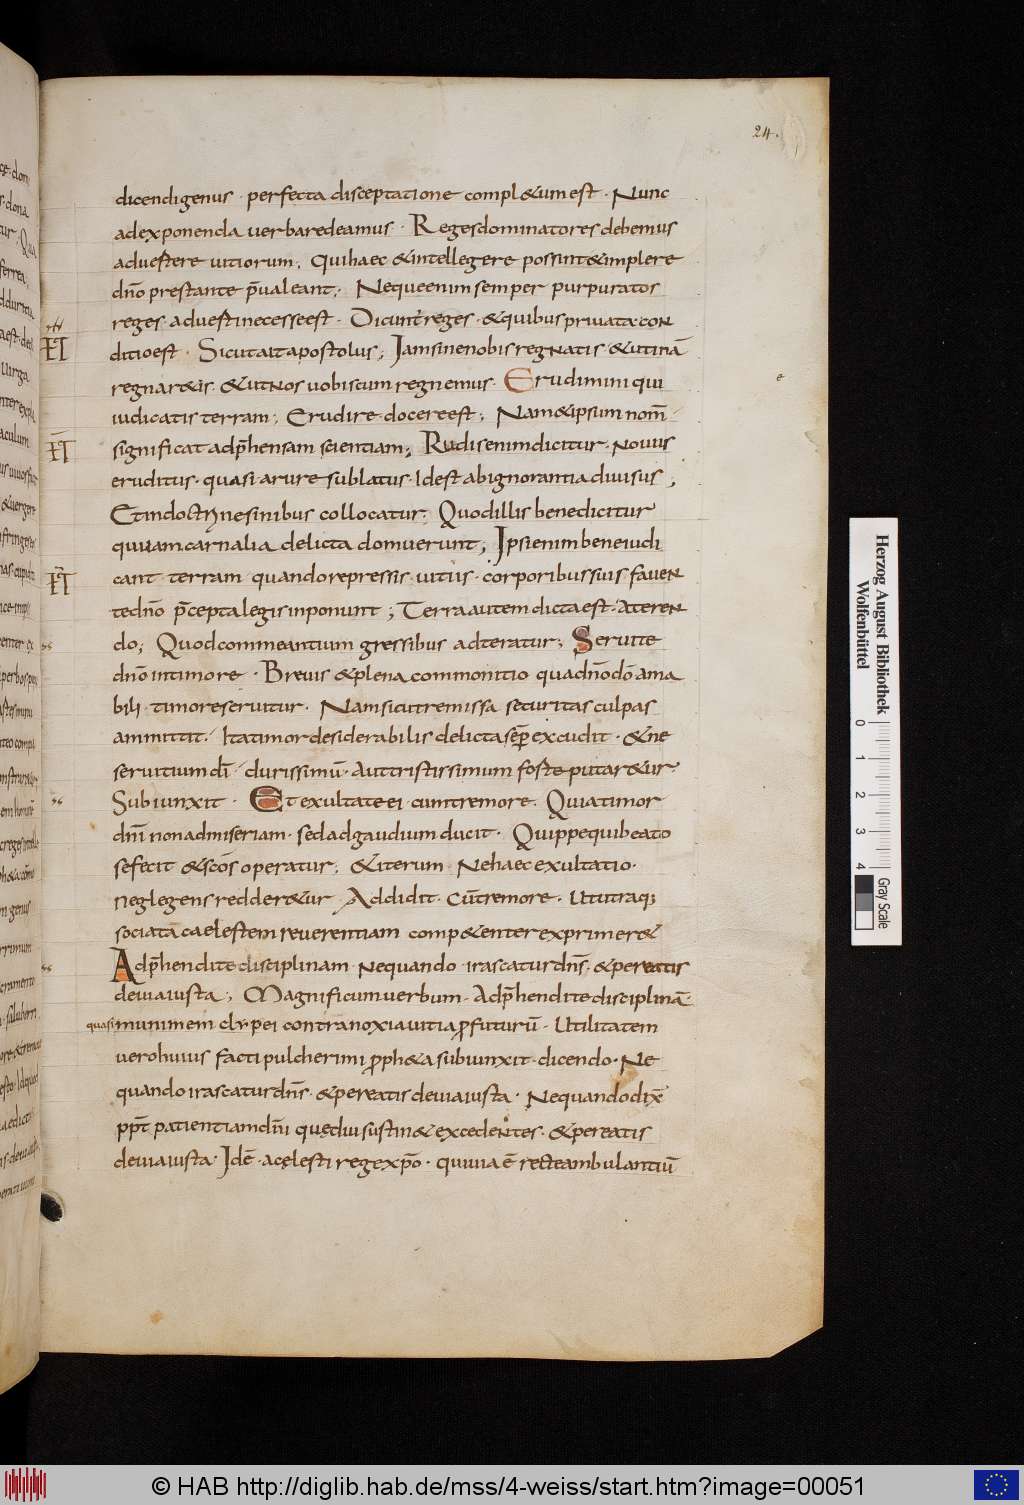 24.
dicendi genus · perfecta disceptatione compl&um est · Nunc
ad exponenda uerba redeamus · Reges dominatores debemus
aduertere uitiorum; Qui haec & intellegere possint & implere
dn̄o prestante p̄ualeant; Neque enim semper purpuratos
reges · aduerti necesse est · Dicunt̄ reges · & quibus priuata con
ditio est · Sicut ait apostolus; Iam sine nobis regnatis · & utinā
regnar&is · & ut nos uobiscum regnemus · Erudimini qui
iudicatis terram; Erudire · docere est; Nam & ipsum nom̄
significat adp̄hensam scientiam; Rudis enim dicitur · nouus
eruditus · quasi a rure sublatus · Id est ab ignorantia diuisus;
Et in doctrinae sinibus collocatur; Quod illis benedicitur
qui iam carnalia delicta domuerunt; Ipsi enim bene iudi
cant · terram · quando repressis · uitiis · corporibus suis fauen
te dn̄o p̄cepta legis inponunt; Terra autem dicta est · a teren
do; Quod commeantium gressibus adteratur; Seruite
dn̄o in timore · Breuis & plena commonitio qua dn̄o dō ama
bili · timore seruitur · Nam sicut remissa securitas culpas
ammittit · Ita timor desiderabilis delicta sep̄ excudit · & ne
seruitium dī · durissimū · aut tristissimum forte putar&ur ·
Subiunxit · Et exultate ei cum tremore · Quia timor
dn̄i non ad miseriam · sed ad gaudium ducit · Quippe qui beato
se fecit & scōs operatur; & iterum · Ne haec exultatio ·
neglegens redder&ur Addidit · cū tremore · Ut utraq;
sociatā caelestem reuerentiam comp&enter exprimer&
Adp̄hendite disciplinam · Nequando irascatur dn̄s · & pereatis
de uia iusta; Magnificum uerbum · Adp̄hendite disciplinā ·
quasi munimem clypei contra noxia uitia p̱futurū · Utilitatem
uero huius facti pulcherimi p̱ph&a subiunxit · dicendo · Ne
quando irascatur dn̄s · & pereatis de uia iusta · Nequando dix̄
pp̄t patientiam dn̄i quę diu sustin& excedentes · & pereatis
de uia iusta · Idē · a cęlesti rege xp̄o · qui uia ē recte ambulantiū
e
Herzog August Bibliothek
Wolfenbüttel
0 1 2 3 4
Gray Scale
© HAB http://diglib.hab.de/mss/4-weiss/start.htm?image=00051